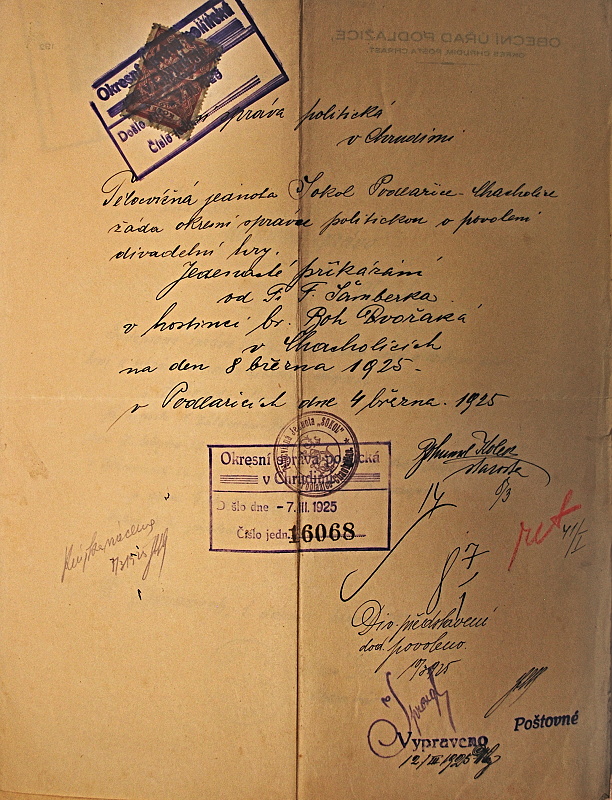 OBECNÍ ÚŘAD PODLAŽICE,
OKRES CHRUDIM, POŠTA CHRAST.
Okresní politická
Došlo
Číslo
správa politická
v Chrudimi
Tělocvičná jednota Sokol Podlažice-Chacholice
žádá okresní správu politickou o povolení
divadelní hry.
Jedenácté přikázání
od F. F. Šamberka
v hostinci br. Boh Dvořáka
v Chacholicích
na den 8 března 1925.
v Podlažicích dne 4 března. 1925
Jednota „SOKOL"
Okresní správa politická
v Chrudimi
Došlo dne -7.III.1925
Číslo jedn. 16068
starosta
17
8/3
ret
41/I
87
Div. představení
dod. povoleno.
10/3 25
Vypraveno
12/III 1925
Poštovné